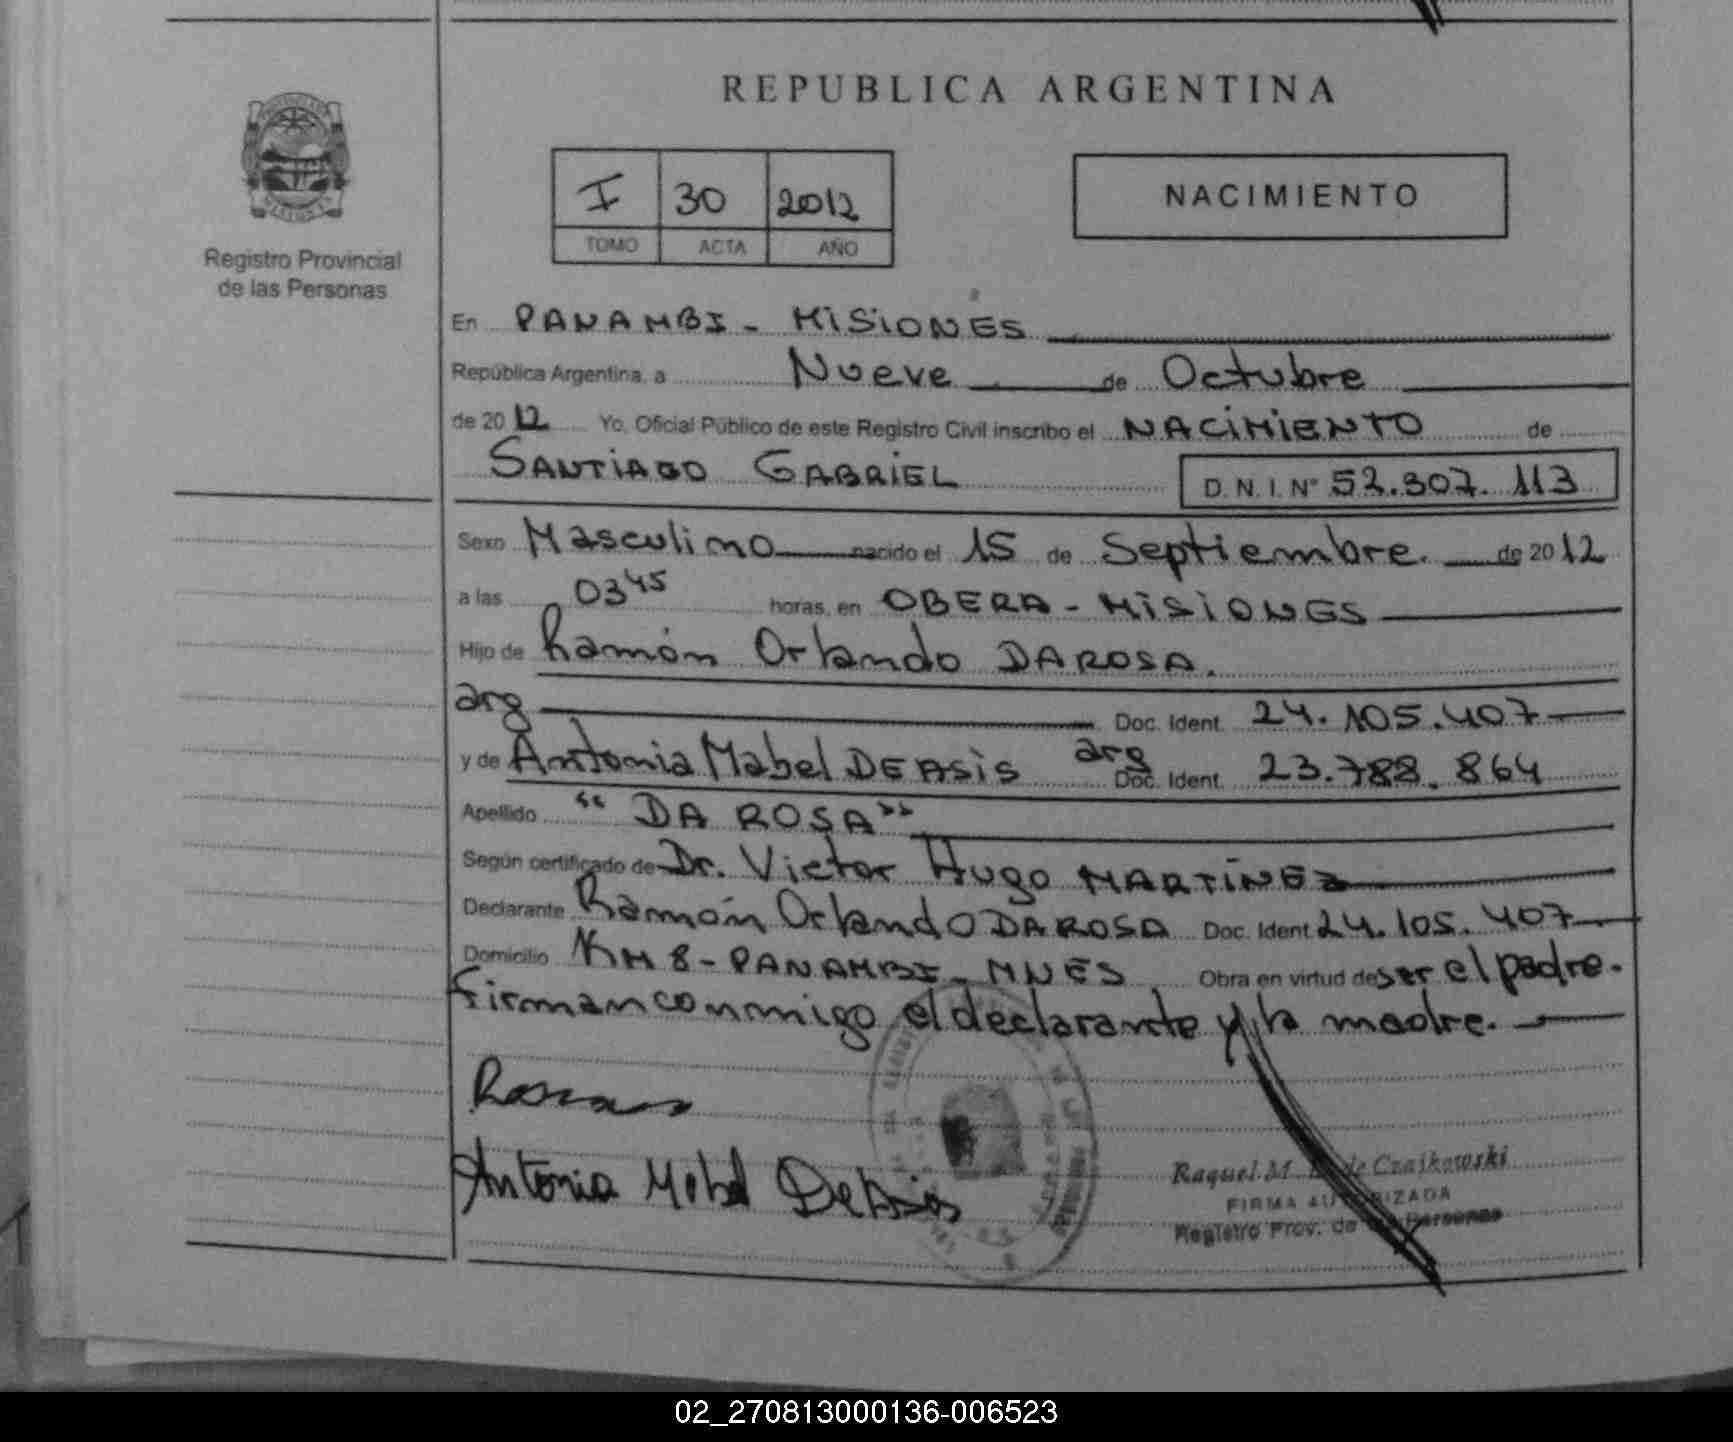 REPUBLICA ARGENTINA
I 30 2012
TOMO ACTA AÑO
NACIMIENTO
Registro Provincial
de las Personas
En PANAMBI - MISIONES
República Argentina, a Nueve de Octubre
de 2012 Yo, Oficial Público de este Registro Civil inscribo el NACIMIENTO de
SANTIAGO GABRIEL D.N.I. N° 52.307.113
Sexo Masculino nacido el 15 de Septiembre. de 2012
a las 03 45 horas, en OBERA - MISIONES
Hijo de Ramón Orlando DA ROSA.
arg Doc. Ident. 24.105.407
y de Antonia Mabel DE ASIS arg Doc. Ident. 23.788.864
Apellido "DA ROSA"
Según certificado de Dr. Victor Hugo MARTÍNEZ
Declarante Ramón Orlando DA ROSA Doc. Ident 24.105.407
Domicilio KM 8 - PANAMBI - MNES Obra en virtud de ser el padre.
Firman conmigo el declarante y la madre.
Antonia Mabel DeAsis
Raquel M de Czajkowski
FIRMA AUTORIZADA
Registro Prov. de las Personas
02_270813000136-006523